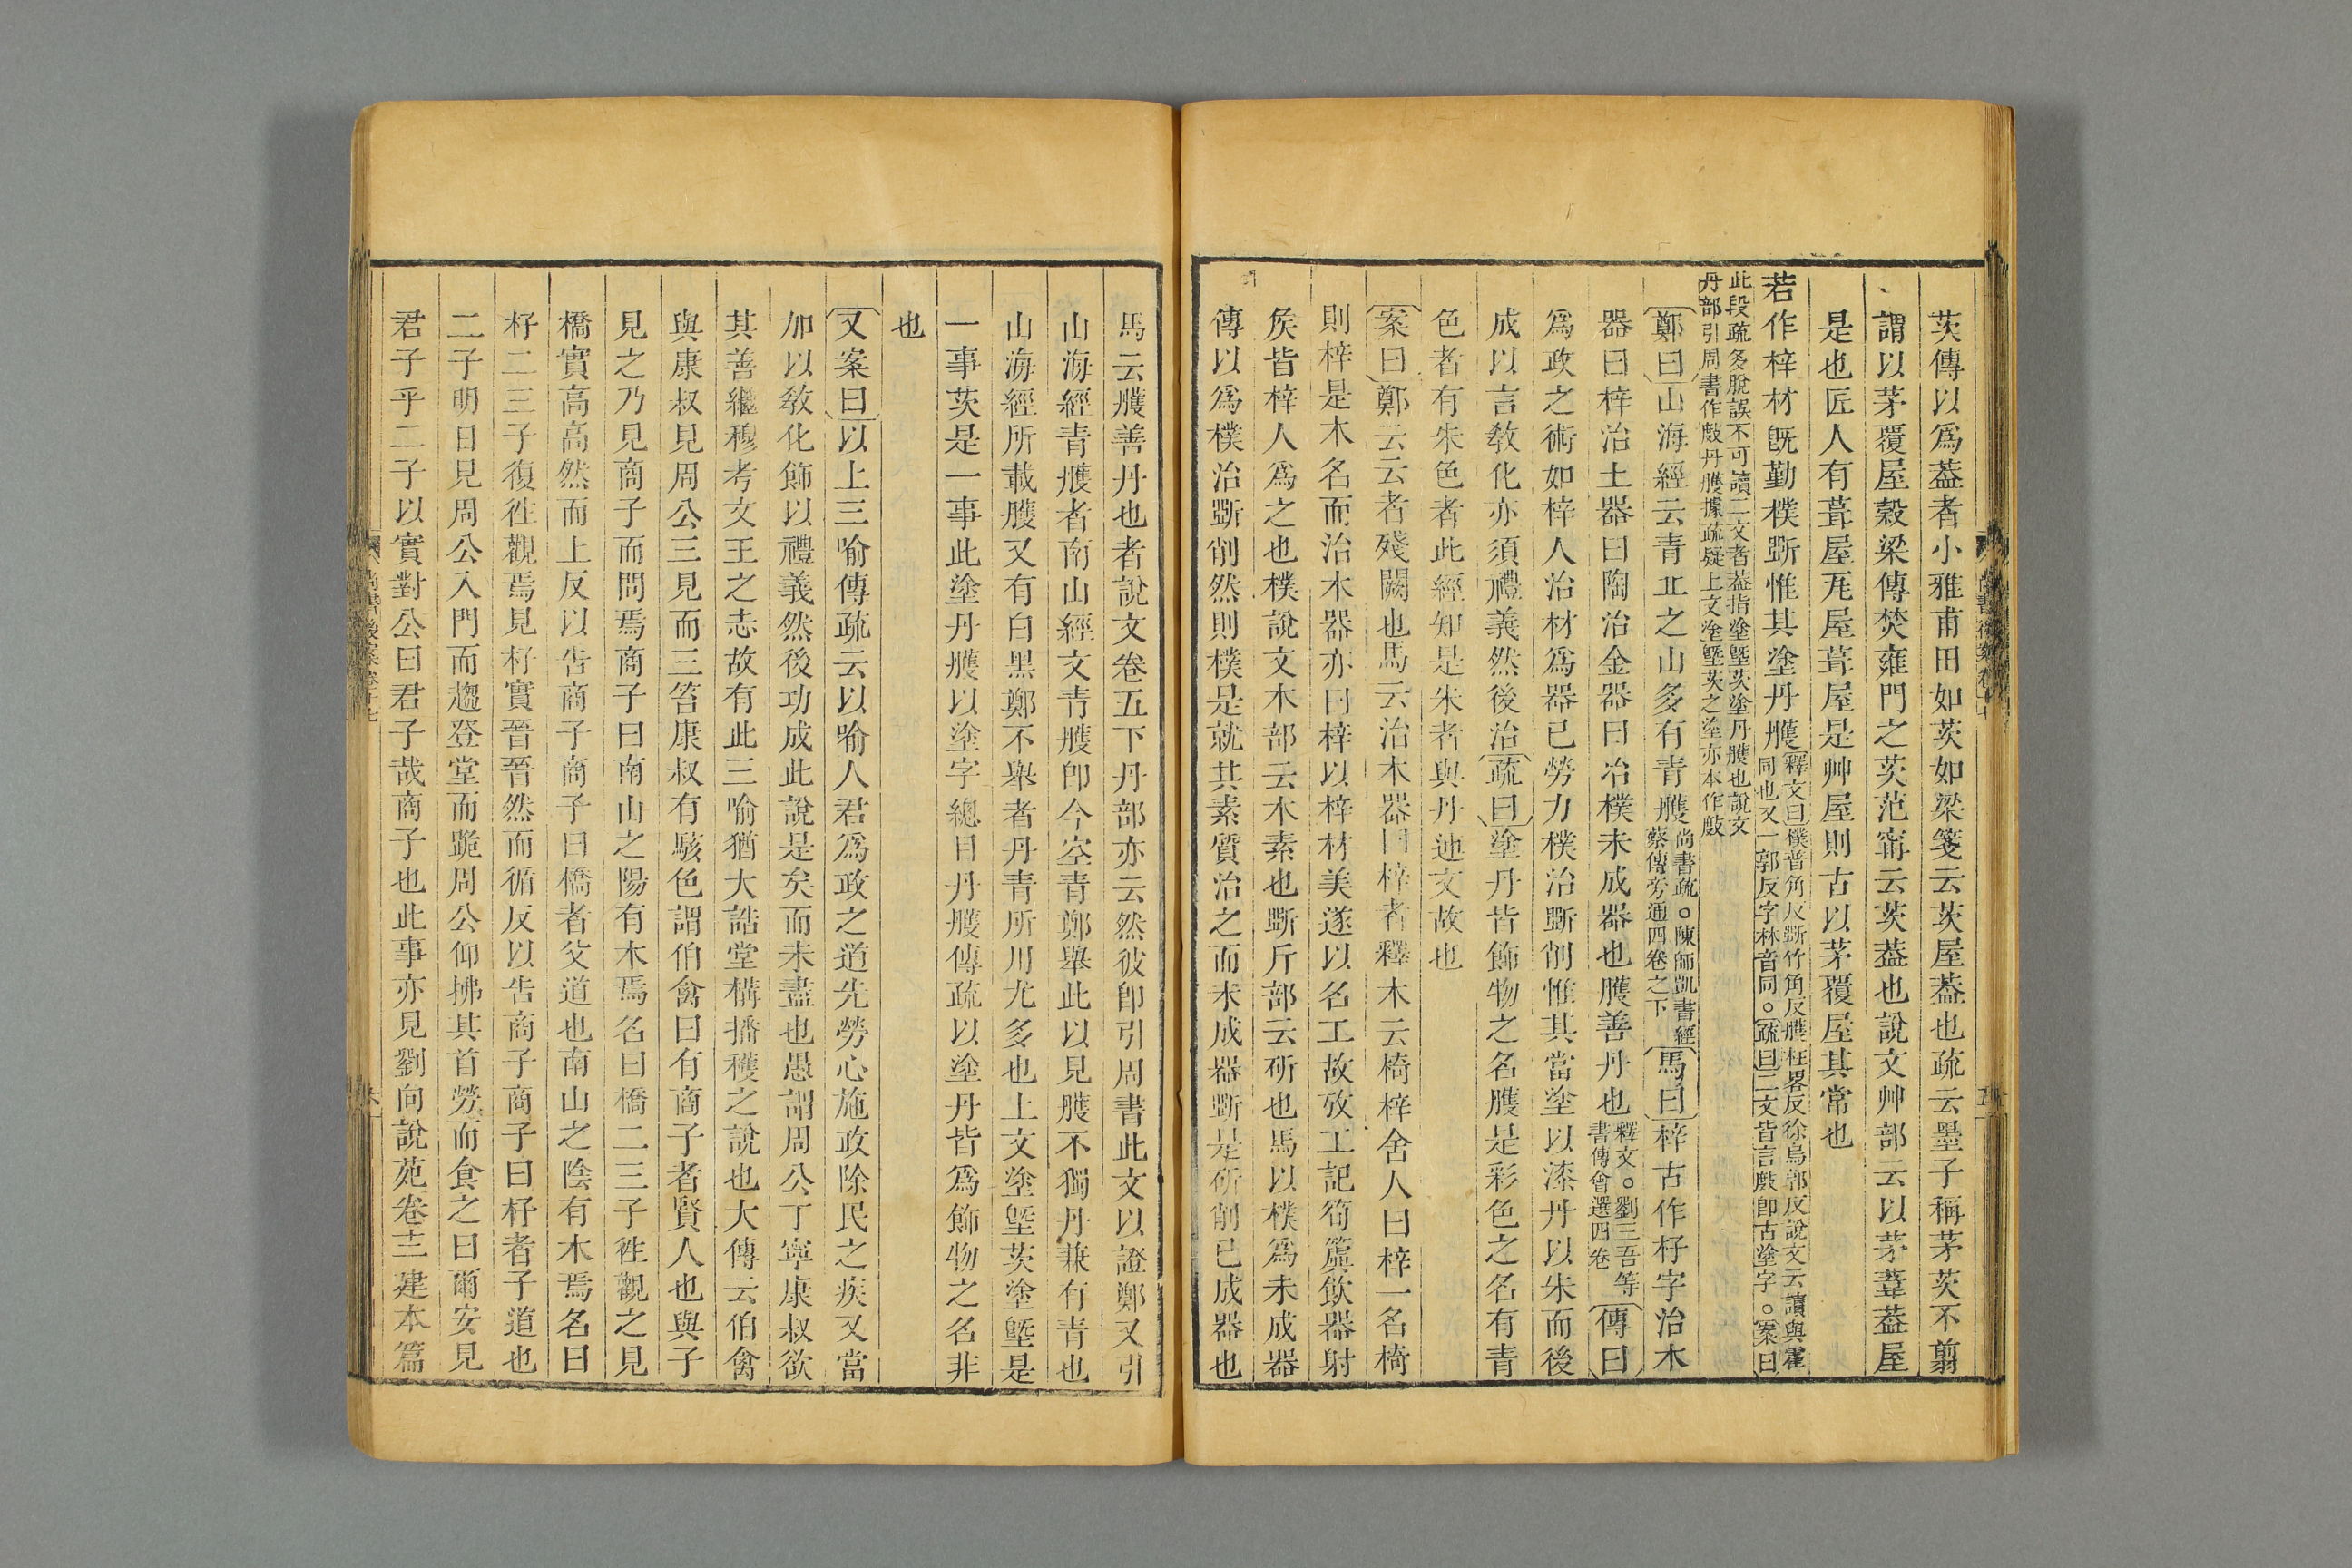 茨傳以爲葢者小雅甫田如茨如梁箋云茨屋葢也疏云墨子稱茅茨不翦
謂以茅覆屋穀梁傳焚雍門之茨范甯云茨葢也說文艸部云以茅葦葢屋
是也匠人有葺屋瓦屋葺屋是艸屋則古以茅覆屋其常也
若作梓材旣勤樸斲惟其塗丹雘釋文曰樸普角反斲竹角反雘枉畧反徐烏郭反說文云讀與霍
同也又一郭反字林音同○疏曰二文皆言𣀮卽古塗字○案曰
此段疏多脫誤不可讀二文者葢指塗塈茨塗丹雘也說文
丹部引周書作𣀮丹雘據疏疑上文塗塈茨之塗亦本作𣀮
鄭曰山海經云青丘之山多有青雘尙書疏○陳師凱書經
蔡傳旁通四卷之下馬曰梓古作杍字治木
器曰梓治土器曰陶治金器曰冶樸未成器也雘善丹也釋文○劉三吾等
書傳會選四卷傳曰
爲政之術如梓人治材爲器已勞力樸治斲削惟其當塗以漆丹以朱而後
成以言敎化亦須禮義然後治疏曰塗丹皆飾物之名雘是彩色之名有青
色者有朱色者此經知是朱者與丹連文故也
案曰鄭云云者殘闕也馬云治木器曰梓者釋木云椅梓舍人曰梓一名椅
則梓是木名而治木器亦曰梓以梓材美遂以名工故攷工記筍簴飮器射
矦皆梓人爲之也樸說文木部云木素也斲斤部云斫也馬以樸爲未成器
傳以爲樸治斲削然則樸是就其素質治之而未成器斲是斫削已成器也
馬云雘善丹也者說文卷五下丹部亦云然彼卽引周書此文以證鄭又引
山海經青雘者南山經文青雘卽今空青鄭舉此以見雘不獨丹兼有青也
山海經所載雘又有白黑鄭不舉者丹青所用尤多也上文塗塈茨塗塈是
一事茨是一事此塗丹雘以塗字總目丹雘傳疏以塗丹皆爲飾物之名非
也
又案曰以上三喻傳疏云以喻人君爲政之道先勞心施政除民之疾又當
加以敎化飾以禮義然後功成此說是矣而未盡也愚謂周公丁寧康叔欲
其善繼穆考文王之志故有此三喻猶大誥堂構播穫之說也大傳云伯禽
與康叔見周公三見而三笞康叔有駭色謂伯禽曰有商子者賢人也與子
見之乃見商子而問焉商子曰南山之陽有木焉名曰橋二三子徃觀之見
橋實高高然而上反以告商子商子曰橋者父道也南山之陰有木焉名曰
杍二三子復徃觀焉見杍實晉晉然而循反以告商子商子曰杍者子道也
二子明日見周公入門而趨登堂而跪周公仰拂其首勞而食之曰爾安見
君子乎二子以實對公曰君子哉商子也此事亦見劉向說苑卷三建本篇